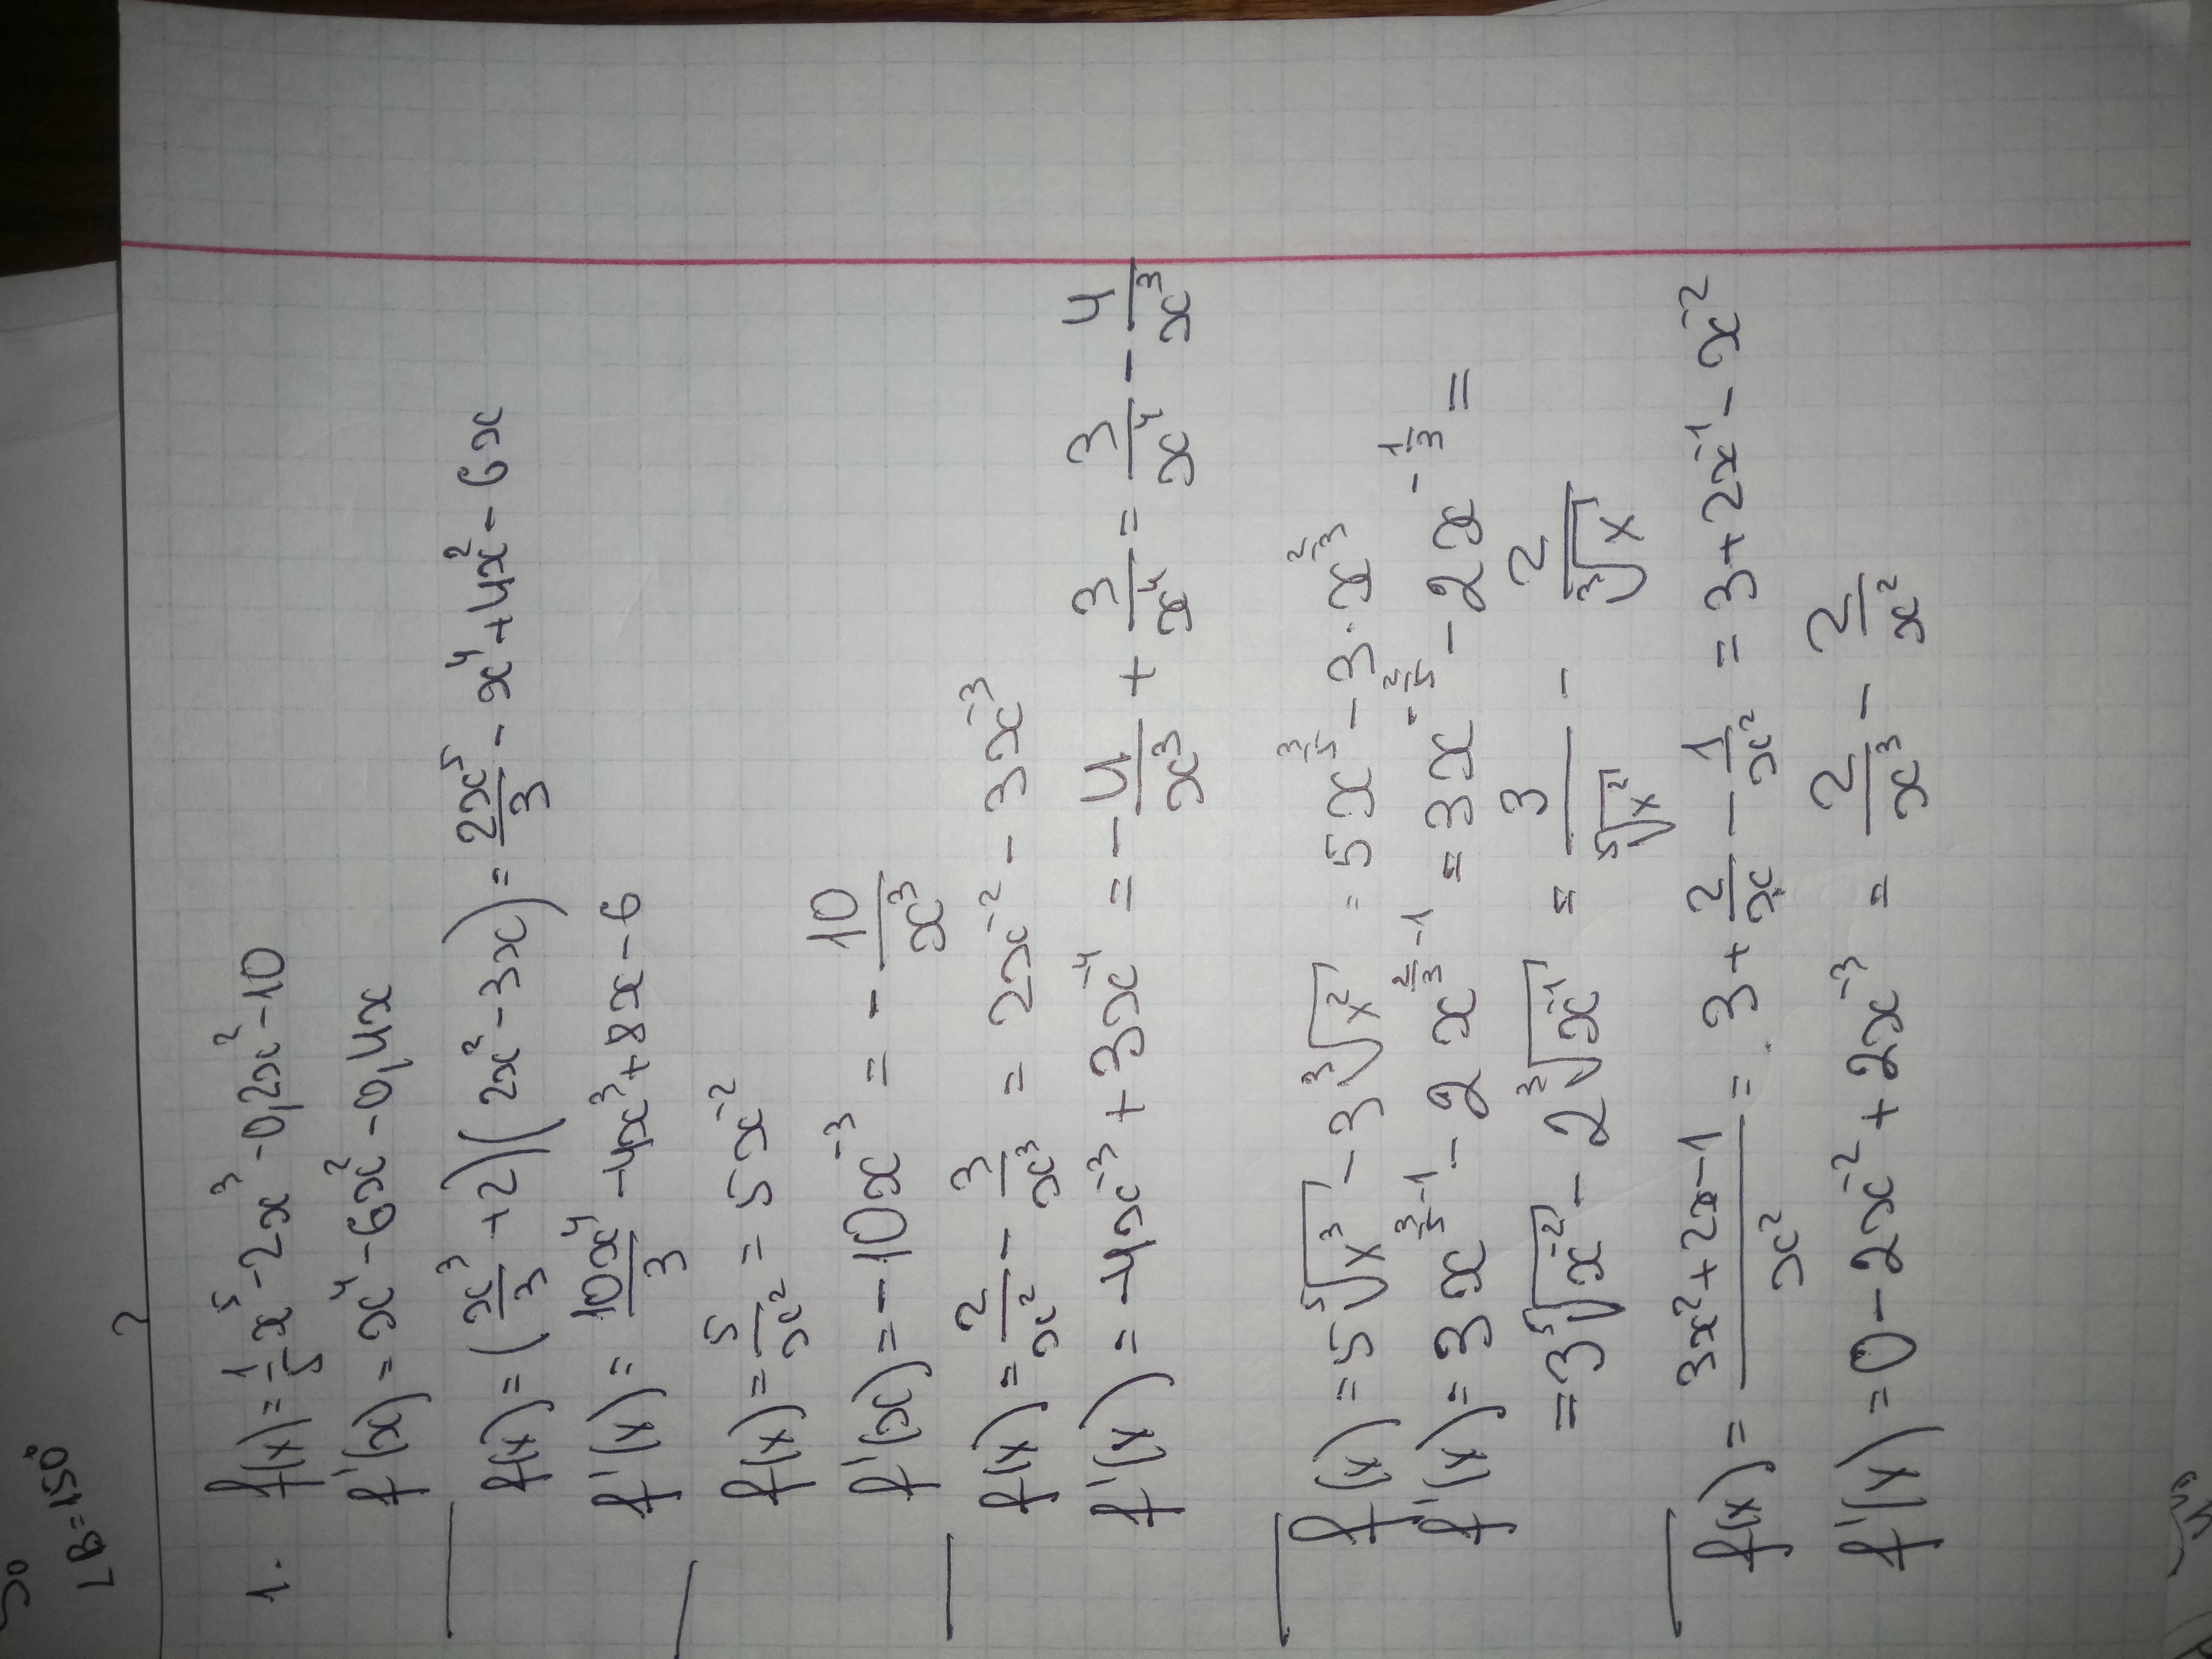 ∠B=150°
1. f(x)=1/5 x^5-2x^3-0,2x^2-10
f'(x)=x^4-6x^2-0,4x
f(x)=(x^3/3+2)(2x^2-3x)=2x^5/3-x^4+4x^2-6x
f'(x)=10x^4/3-4x^3+8x-6
f(x)=5/x^2=5x^-2
f'(x)=-10x^-3=-10/x^3
f(x)=2/x^2-3/x^3=2x^-2-3x^-3
f'(x)=-4x^-3+3x^-4=-4/x^3+3/x^4=3/x^4-4/x^3
f(x)=5 ⁵√x^3-3 ³√x^2=5x^(3/5)-3·x^(2/3)
f'(x)=3x^(3/5-1)-2x^(2/3-1)=3x^(-2/5)-2x^(-1/3)=
=3 ⁵√x^-2-2 ³√x^-1=3/⁵√x^2-2/³√x
f(x)=(3x^2+2x-1)/x^2=3+2/x-1/x^2=3+2x^-1-x^-2
f'(x)=0-2x^-2+2x^-3=2/x^3-2/x^2